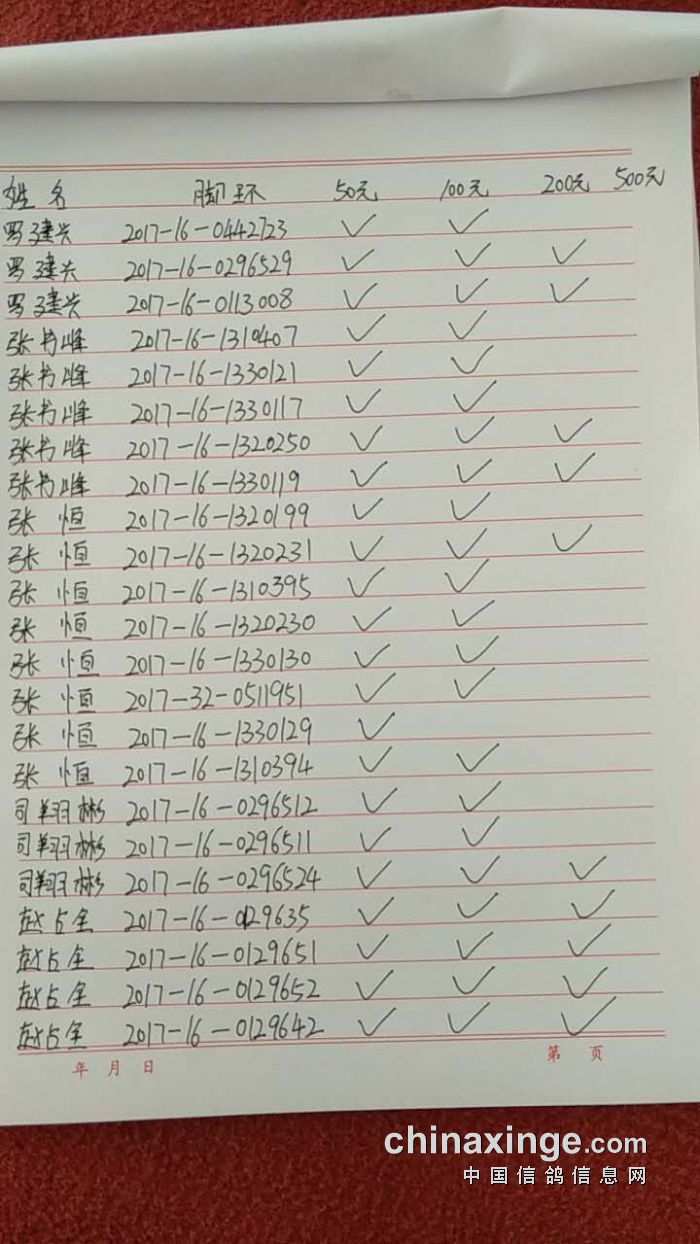 姓 名 脚环 50元 100元 200元 500元
罗建兴 2017-16-0442723 ✓ ✓
罗建兴 2017-16-0296529 ✓ ✓ ✓
罗建兴 2017-16-0113008 ✓ ✓ ✓
张书峰 2017-16-1310407 ✓ ✓
张书峰 2017-16-1330121 ✓ ✓
张书峰 2017-16-1330117 ✓ ✓
张书峰 2017-16-1320250 ✓ ✓ ✓
张书峰 2017-16-1330119 ✓ ✓ ✓
张 恒 2017-16-1320199 ✓ ✓
张 恒 2017-16-1320231 ✓ ✓ ✓
张 恒 2017-16-1310395 ✓ ✓
张 恒 2017-16-1320230 ✓ ✓
张 恒 2017-16-1330130 ✓ ✓
张 恒 2017-32-0511951 ✓ ✓
张 恒 2017-16-1330129 ✓
张 恒 2017-16-1310394 ✓ ✓
司翔彬 2017-16-0296512 ✓ ✓
司翔彬 2017-16-0296511 ✓ ✓
司翔彬 2017-16-0296524 ✓ ✓ ✓
赵占全 2017-16-0129635 ✓ ✓ ✓
赵占全 2017-16-0129651 ✓ ✓ ✓
赵占全 2017-16-0129652 ✓ ✓ ✓
赵占全 2017-16-0129642 ✓ ✓ ✓
年 月 日 第 页
chinaxinge.com
中国信鸽信息网